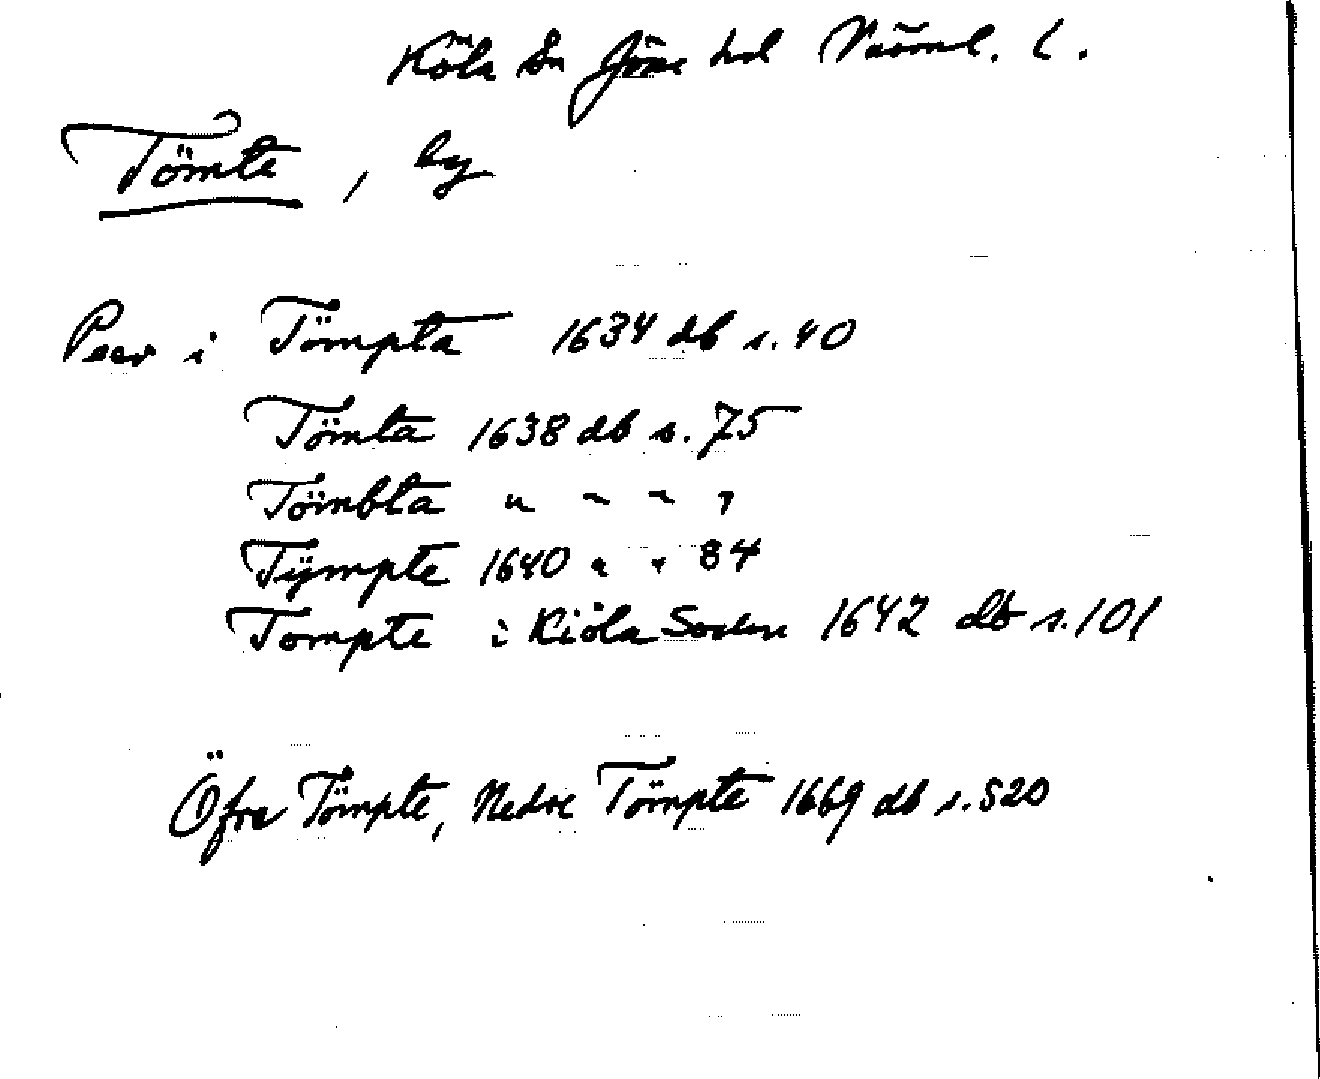 Köla Sn Jöse hd Värml. l.
Tömte, by
Peer i Tömpta 1634 db s. 40
Tömta 1638 db s. 75
Tömbta " " " "
Tÿmpte 1640 " " 84
Tompte i Kiöla Soden 1642 db s. 101
Öfre Tömpte, Nedre Tömpte 1669 db s. 520